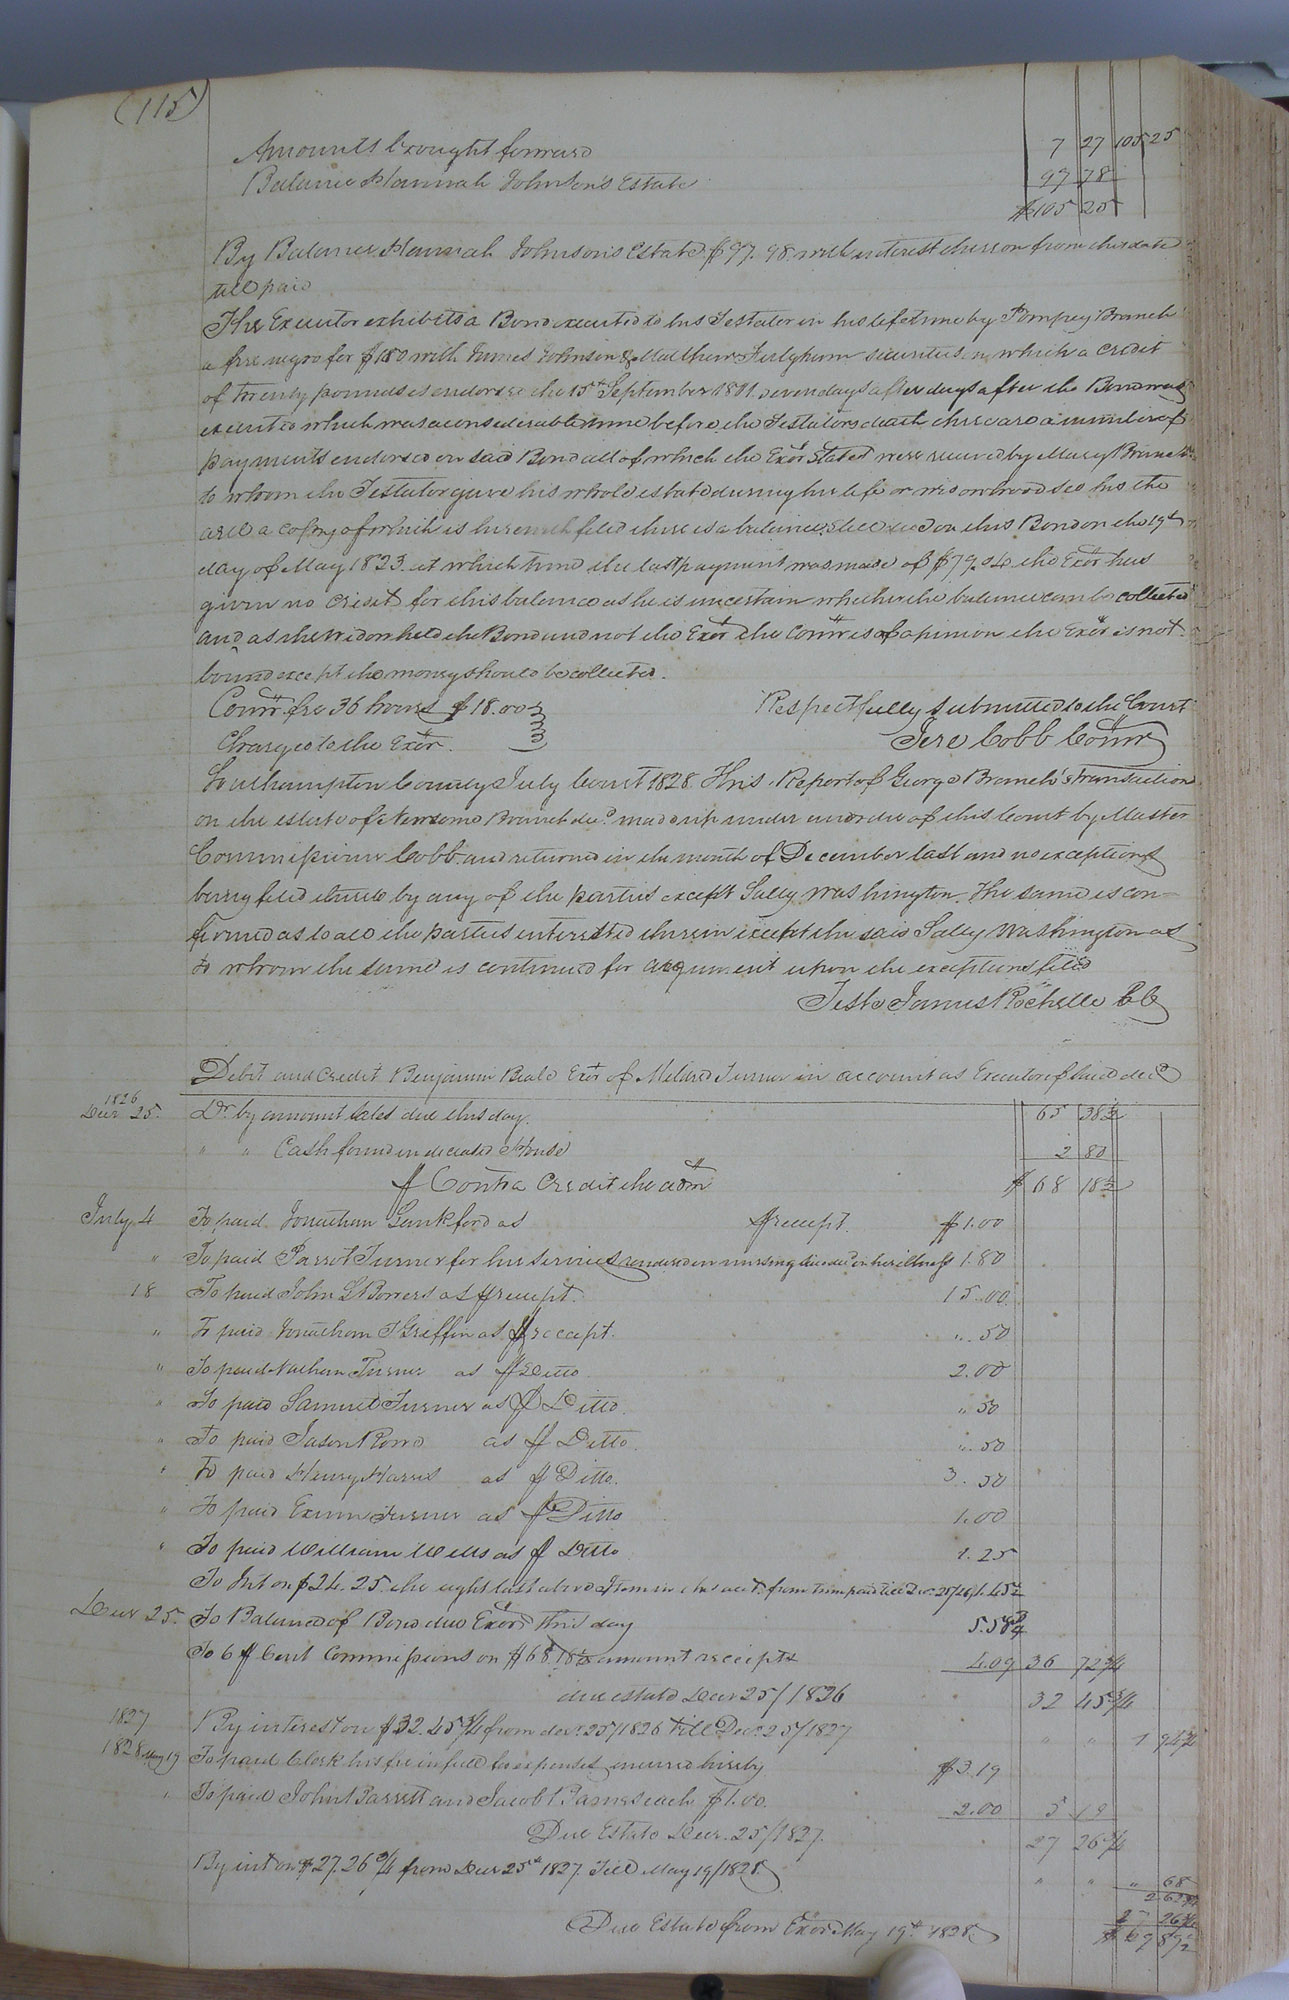 (115)
Amounts brought forward 7 27 105 25
Balance Hannah Johnson's Estate 97 78
$105 25
By Balance Hannah Johnson's Estate $97.98 with interest thereon from this date
till paid
The Executor exhibits a Bond executed to his Testator in his lifetime by Pompey Branch
a free negro for $180 with James Johnson & Matthew Fulgham securities, on which a credit
of twenty pounds is endorsed the 15th September 1801 seven days after days after the Bond was
executed which was a considerable time before the Testators death there are a number of
payments endorsed on said Bond all of which the Exor stated were received by Mary Branch
to whom the Testator gave his whole estate during her life or widowhood see his the
will a copy of which is herewith filed there is a balance still due on this Bond on the 19th
day of May 1823 at which time the last payment was made of $79.54 the Exor has
given no credit for this balance as he is uncertain whether the balance can be collected
and as the widow held the Bond and not the Exor the Comr is of opinion the Exor is not
bound except the money should be collected.
Comr. fee 36 hours $18.00 Respectfully submitted to the Court
Charged to the Exor. Jere Cobb Comr
Southampton County July Court 1828. This Report of George Branch's transaction
on the estate of Newsome Branch decd. made up under an order of this Court by Master
Commissioner Cobb and returned in the month of December last and no exceptions
being filed thereto by any of the parties except Sally Washington. The same is con=
firmed as to all the parties interested therein except the said Sally Washington as
to whom the same is continued for argument upon the exceptions filed
Teste James Rochelle CC
Debit and credit Benjamin Beale Exor of Mildred Turner in account as Executor of said decd
1826
Decr 25. Dr. by amount sales due this day. 65 38½
" " Cash found in deceased House 2 80
℔ Contra Credit the adm $ 68 18½
July 4 To paid Jonathan Lankford as ℔ receipt. $1.00
" To paid Parrot Turner for her services rendered in nursing the decd in her illness 1.80
18 To paid John L Bowers as ℔ receipt. 15.00
" To paid Jonathan T Griffin as ℔ receipt. ".50
" To paid Nathan Turner as ℔ Ditto 2.00
" To paid Samuel Turner as ℔ Ditto. ".50
" To paid Jason Rowe as ℔ Ditto. ".50
" To paid Henry Harris as ℔ Ditto. 3.50
" To paid Exum Turner as ℔ Ditto 1.00
" To paid William Wells as ℔ Ditto 1.25
To Int on $24.25 the eight last above Items in this acct. from time paid till Decr 25/26 1.45½
Decr 25. To Balance of Bond due Exor this day 5.58¾
To 6 ℔ Cent Commissions on $68.18½ amount receipts 4.09 36 72¾
due estate Decr 25/1826 32 45¾
1827 By interest on $32.45¾ from decr. 25/1826 till Decr. 25/1827 " " 1 94¾
1828 May 19 To paid Clerk his fee in full for expenses incurred hereby $3.19
" To paid John Barrett and Jacob Barnes each $1.00. 2.00 5 19
Due Estate Decr. 25/1827. 27 26¾
By int on $27.26¾ from Decr 25th 1827. Till May 19/1828. " " " 68
2 62¾
27 26¾
Due Estate from Exor May 19th 1828. $ 29 89½